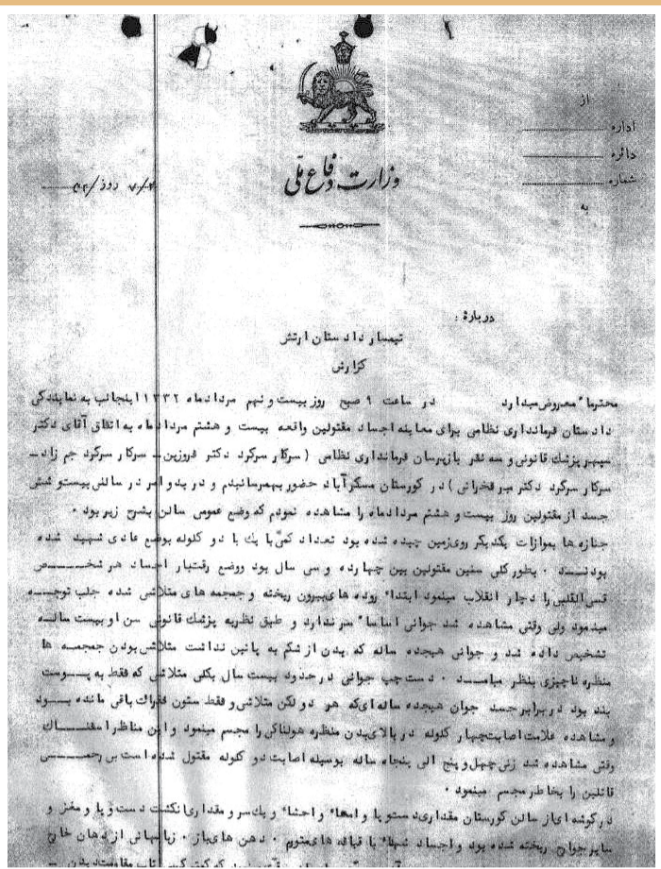 از
اداره
دائره
شماره
به
وزارت دفاع ملی
درباره :
تیمسار دادستان ارتش
گزارش
محترما" معروض میدارد در ساعت ۹ صبح روز بیست و نهم مردادماه ۱۳۳۲ اینجانب به نمایندگی
دادستان فرمانداری نظامی برای معاینه اجساد مقتولین واقعه بیست و هشتم مردادماه به اتفاق آقای دکتر
سپهر پزشک قانونی و سه نفر بازپرسان فرمانداری نظامی ( سرکار سرگرد دکتر فروزین ـ سرکار سرگرد جم زاد ـ
سرکار سرگرد دکتر میر فخرائی ) در گورستان مسگرآباد حضور بهمرسانیدم و در بدو امر در سالنی بیست و شش
جسد از مقتولین روز بیست و هشتم مردادماه را مشاهده نمودم که وضع عمومی سالن بشرح زیر بود .
جنازه ها بموازات یکدیگر روی زمین چیده شده بود تعداد کمی با یک یا دو گلوله بوضع عادی شهید شده
بودند . بطور کلی سنین مقتولین بین چهارده و سی سال بود و وضع رقتبار اجساد هر شخص
قسی القلبی را دچار انقلاب مینمود ابتداء روده های بیرون ریخته و جمجمه های متلاشی شده جلب توجه
مینمود ولی وقتی مشاهده شد جوانی اساسا" سر ندارد و طبق نظریه پزشک قانونی سن او بیست ساله
تشخیص داده شد و جوانی هیجده ساله که بدن از شکم به پائین نداشت متلاشی بودن جمجمه ها
منظره ناچیزی بنظر میامد . دست چپ جوانی در حدود بیست سال بکلی متلاشی که فقط به پوست
بند بود در برابر جسد جوان هیجده ساله ای که هر دو لگن متلاشی و فقط ستون فقرات باقی مانده بود
و مشاهده علامت اصابت چهار گلوله در بالای بدن منظره هولناکی را مجسم مینمود و این مناظر اسفناک
وقتی مشاهده شد زنی چهل و پنج الی پنجاه ساله بوسیله اصابت دو گلوله مقتول شده است بی رحمی
قاتلین را بخاطر مجسم مینمود .
در گوشه ای از سالن گورستان مقداری دست و پا و امعاء و احشاء و یک سر و مقداری انگشت دست و پا و مغز و
سایر جوارح ریخته شده بود و اجساد شهداء با قیافه های . دهن های باز . زبانهائی از دهان خارج